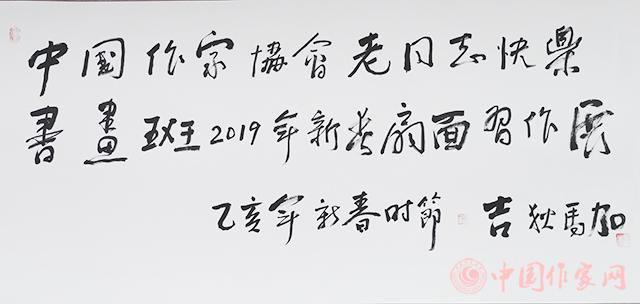 中國作家協會老同志快樂
書畫班2019年新春扇面習作展
乙亥年新春时節 吉狄馬加
中国作家网